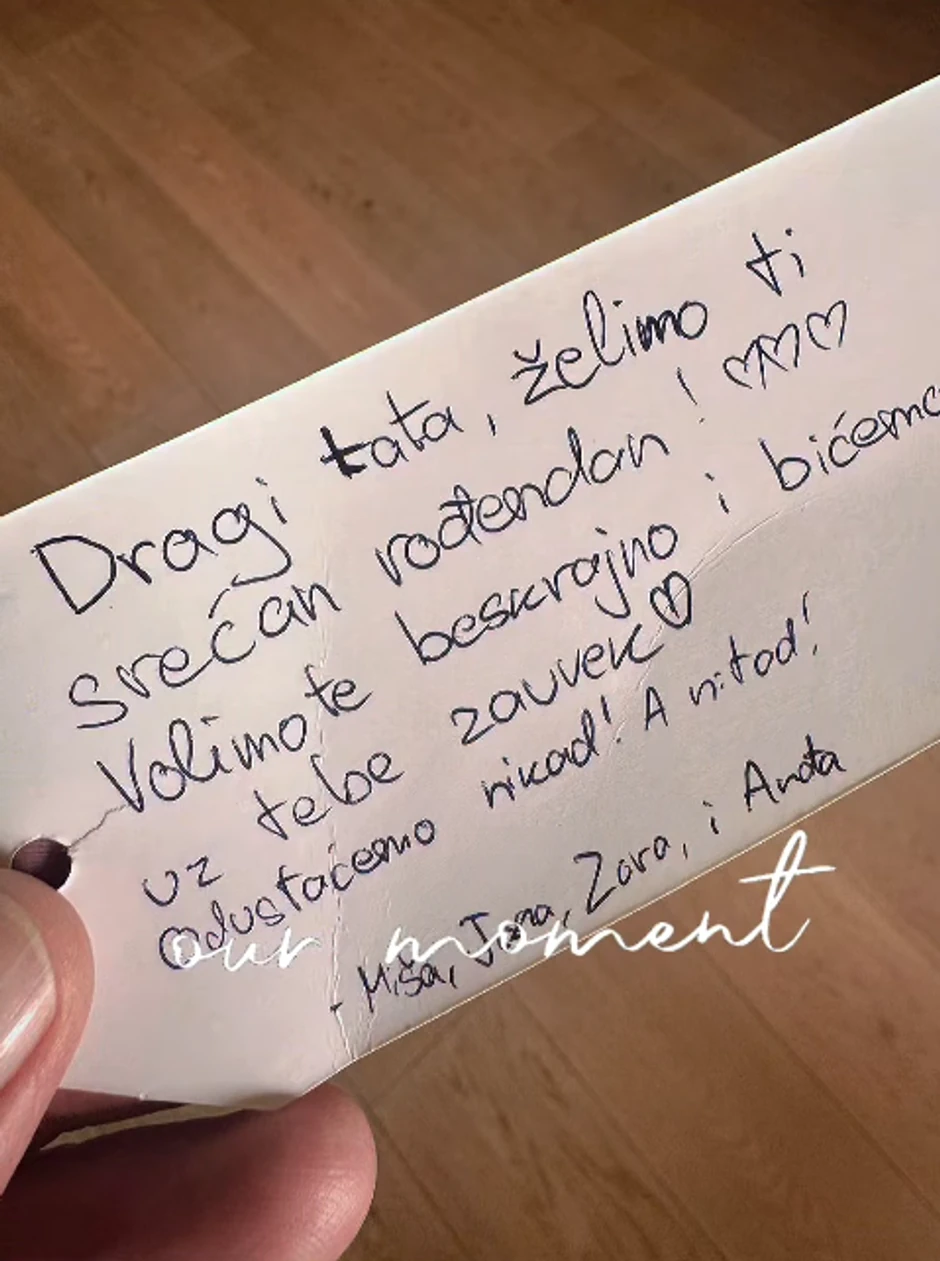 Dragi tata, želimo ti
srećan rođendan! ♡♡♡
Volimo te beskrajno i bićemo
uz tebe zauvek ♡
Odustaćemo nikad! A nikad!
- Miša, Jana, Zara, i Anđa
our moment